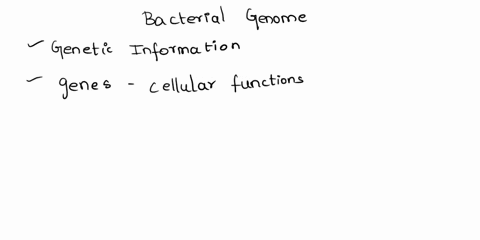 Bacterial Genome
✓ Genetic Information
✓ genes - cellular functions